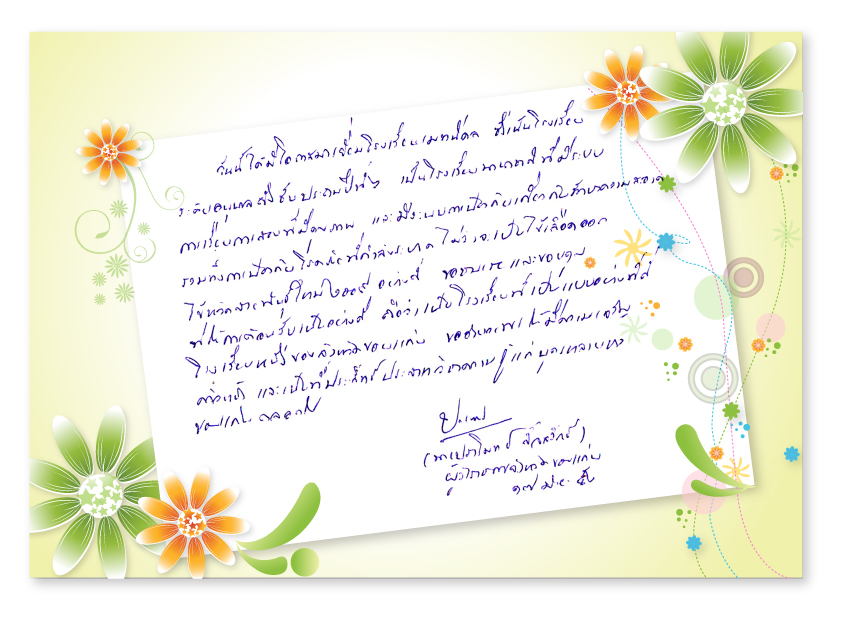 วันนี้ได้มีโอกาสมาเยี่ยมโรงเรียน ซึ่งเป็นโรงเรียน
ระดับอนุบาลถึงชั้นประถมปีที่ ๖ เป็นโรงเรียน ที่มีระบบ
การเรียนการสอนที่มีคุณภาพ และมีระบบการป้องกันเกี่ยวกับรักษาความสะอาด
รวมทั้งการป้องกันโรคติดต่อที่กำลังระบาด ไม่ว่าจะเป็นไข้เลือดออก
ไข้หวัดสายพันธุ์ใหม่ อย่างดี ขอชมเชยและขอบคุณ
ที่ให้การต้อนรับเป็นอย่างดี ถือว่าเป็นโรงเรียนที่เป็นแบบอย่างที่ดี
โรงเรียนหนึ่งของจังหวัดขอนแก่น ขออำนวยพรให้มีความเจริญ
และเป็นที่ประสิทธิ์ประสาทวิชาความรู้แก่
ขอนแก่น ตลอดไป
(นายปราโมทย์ สัจจรักษ์)
ผู้ว่าราชการจังหวัดขอนแก่น
๑๗ มิ.ย. ๕๒